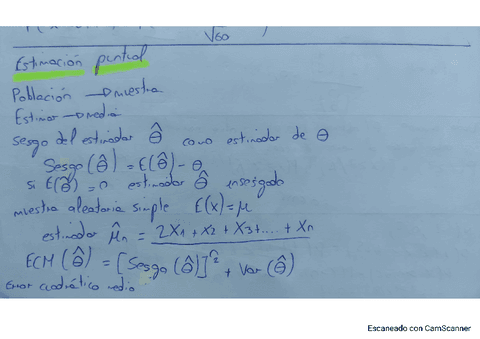 √60
Estimación puntual
Población → muestra
Estimar → media
sesgo del estimador θ̂ como estimador de θ
Sesgo (θ̂) = E(θ̂) - θ
si E(θ̂) = 0 estimador θ̂ insesgado
muestra aleatoria simple E(x) = μ
estimador μ̂n = 2X1 + X2 + X3 + .... + Xn
ECM (θ̂) = [Sesgo (θ̂)]² + Var (θ̂)
Error cuadrático medio
Escaneado con CamScanner